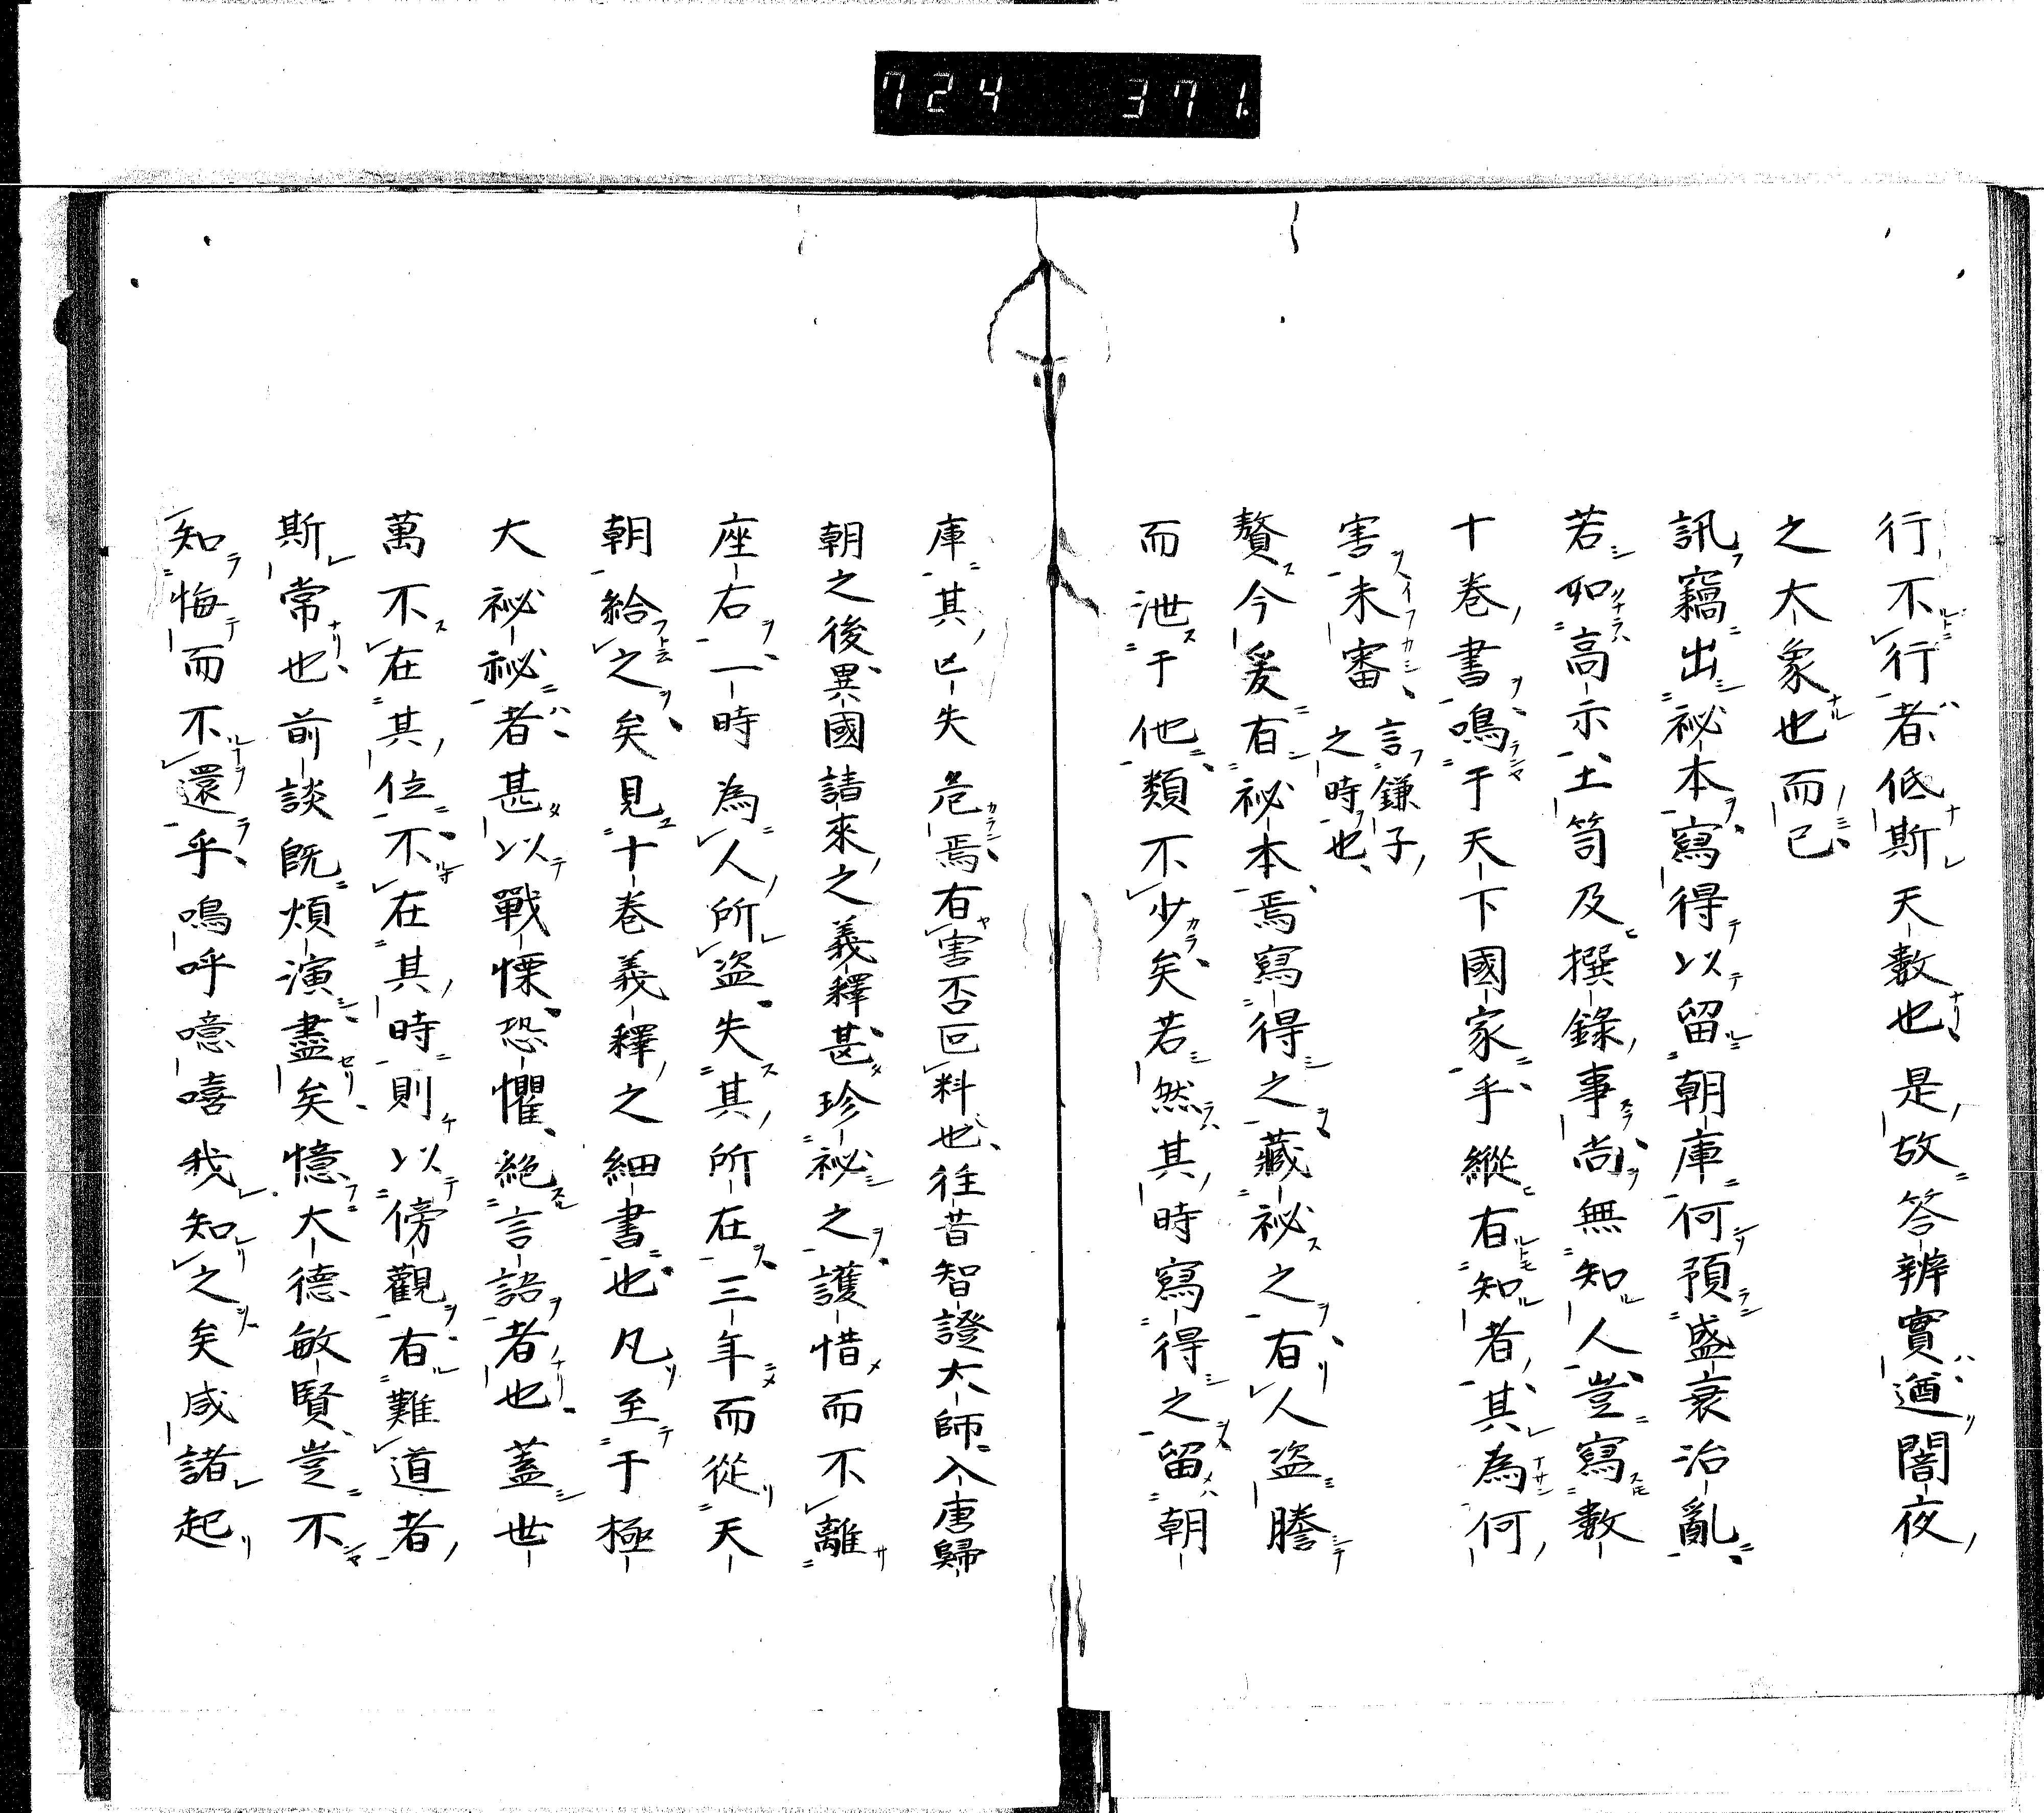 724 371.
行不行者低斯天數也是故答辨實遒闇夜
之大象也而已
訊竊出祕本寫得以留朝庫何預盛衰治亂
若如高示土笥及撰錄事尚無知人豈寫數
十巻書鳴于天下國家乎縱有知者其為何
害未審 言鎌子
之時也
贅今爰有祕本焉寫得之藏祕之有人盗謄
而泄于他類不少矣若然其時寫得之留朝
庫其亡失危焉有害否叵料也往昔智證大師入唐歸
朝之後異國請來之義釋甚珍祕之護惜而不離
座右一時為人所盗失其所在三年而從天
朝給之矣見十巻義釋之細書也凡至于極
大祕祕者甚以戰慄恐懼絕言語者也蓋世
萬不在其位不在其時則以傍觀有難道者
斯常也前談既煩演盡矣憶大德敏賢豈不
知悔而不還乎鳴呼噫嘻我知之矣咸諸起